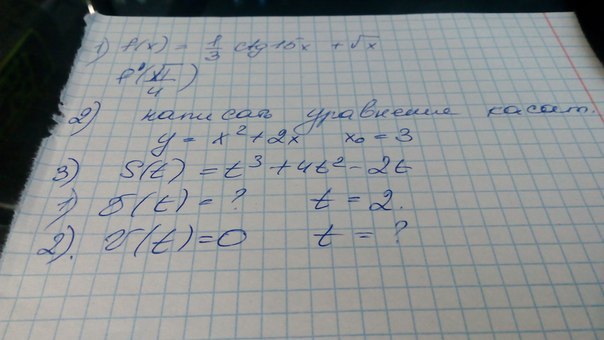 1) f(x) = 1/3 ctg 15x + √x
f'(π/4)
2) написать уравнение касат.
y = x² + 2x x₀ = 3
3) S(t) = t³ + 4t² - 2t
1) v(t) = ? t = 2.
2). v(t) = 0 t = ?